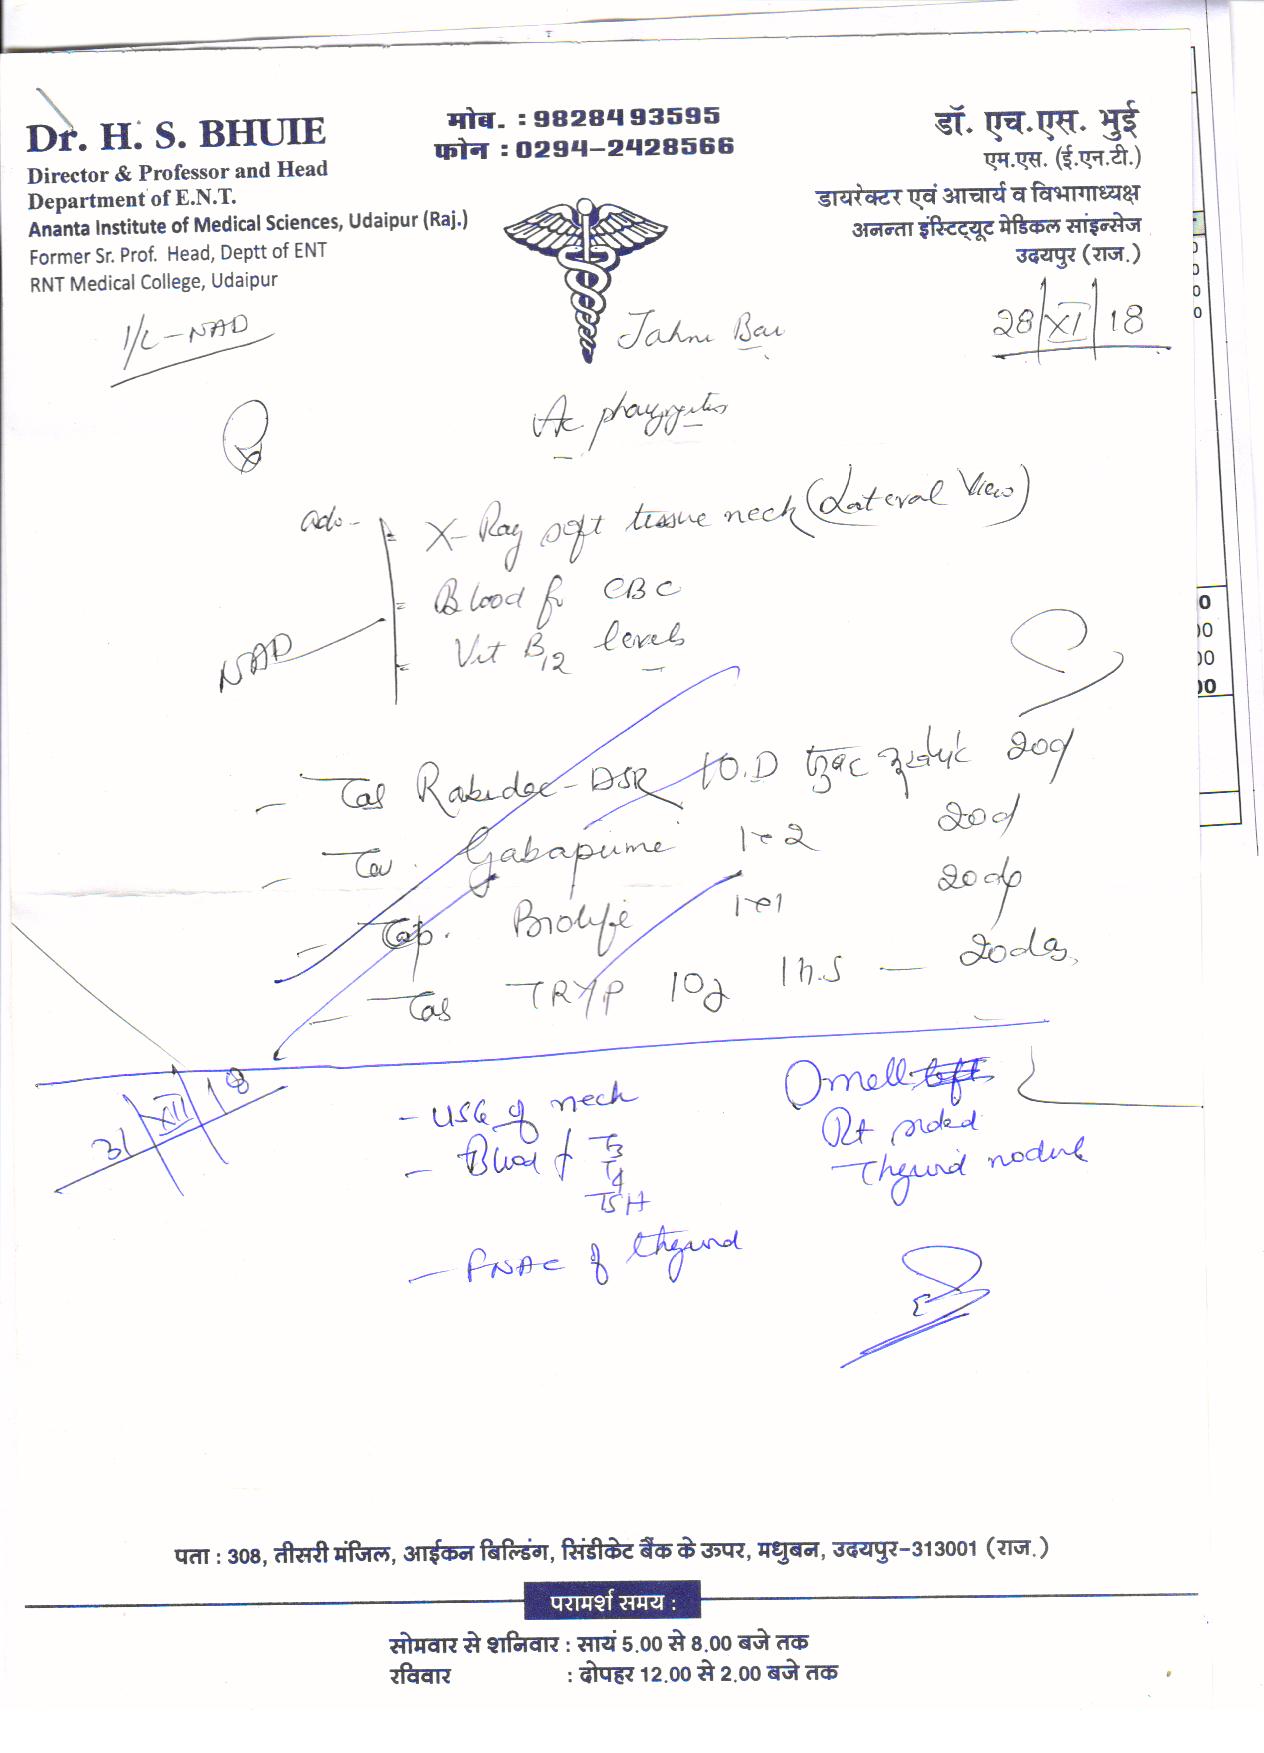 Dr. H. S. BHUIE
Director & Professor and Head
Department of E.N.T.
Ananta Institute of Medical Sciences, Udaipur (Raj.)
Former Sr. Prof. Head, Deptt of ENT
RNT Medical College, Udaipur
मोब. : 98284 93595
फोन : 0294-2428566
डॉ. एच.एस. भुई
एम.एस. (ई.एन.टी.)
डायरेक्टर एवं आचार्य व विभागाध्यक्ष
अनन्ता इंस्टिट्यूट मेडिकल सांइन्सेज
उदयपुर (राज.)
I/L-NAD
28/XI/18
adv-
X-Ray soft tissue neck (Lateral View)
Blood for CBC
Vit B12 levels
NAD
- Tab DSR 1 O.D 20d
- 1-2 20d
- Cap. 1-1 20d
- Tab TRYP 10g 1 h.s - 20days
31/XII/18
- USG of neck
- Blood f T3
T4
TSH
- FNAC of thyroid
Rt sided
Thyroid nodule
पता : 308, तीसरी मंजिल, आईकन बिल्डिंग, सिंडीकेट बैंक के ऊपर, मधुबन, उदयपुर-313001 (राज.)
परामर्श समय :
सोमवार से शनिवार : सायं 5.00 से 8.00 बजे तक
रविवार : दोपहर 12.00 से 2.00 बजे तक